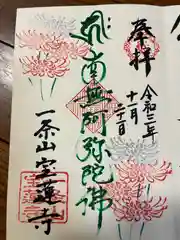 奉拝
令和二年
十一月
南無阿弥陀佛
一茶山宝蓮寺